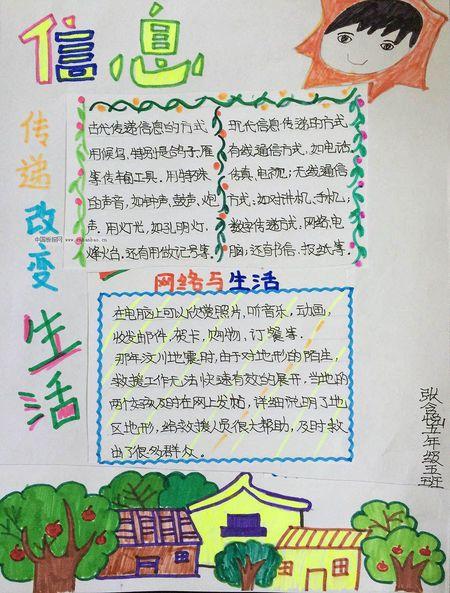 信息
传递
改变
生活
古代传递信息的方式
用候鸟，特别是鸽子、雁
等传输工具。用特殊
的声音，如钟声、鼓声、炮
声。用灯光，如孔明灯、
烽火台。还有用做记号等。
现代信息传递的方式
有线通信方式，如电话、
传真、电视；无线通信
方式，如对讲机、手机；
数字传递方式，网络、电
脑；还书信、报纸等。
中国板报网 www.banbao.cn
网络与生活
在电脑上可以欣赏照片，听音乐，动画，
收发邮件，贺卡，购物，订餐等。
那年汶川地震时，由于对地形的陌生，
救援工作无法快速有效的展开，当地的
两个好友及时在网上发帖，详细说明了地
区地形，给救援人员很大帮助，及时救
出了很多群众。
五年级五班